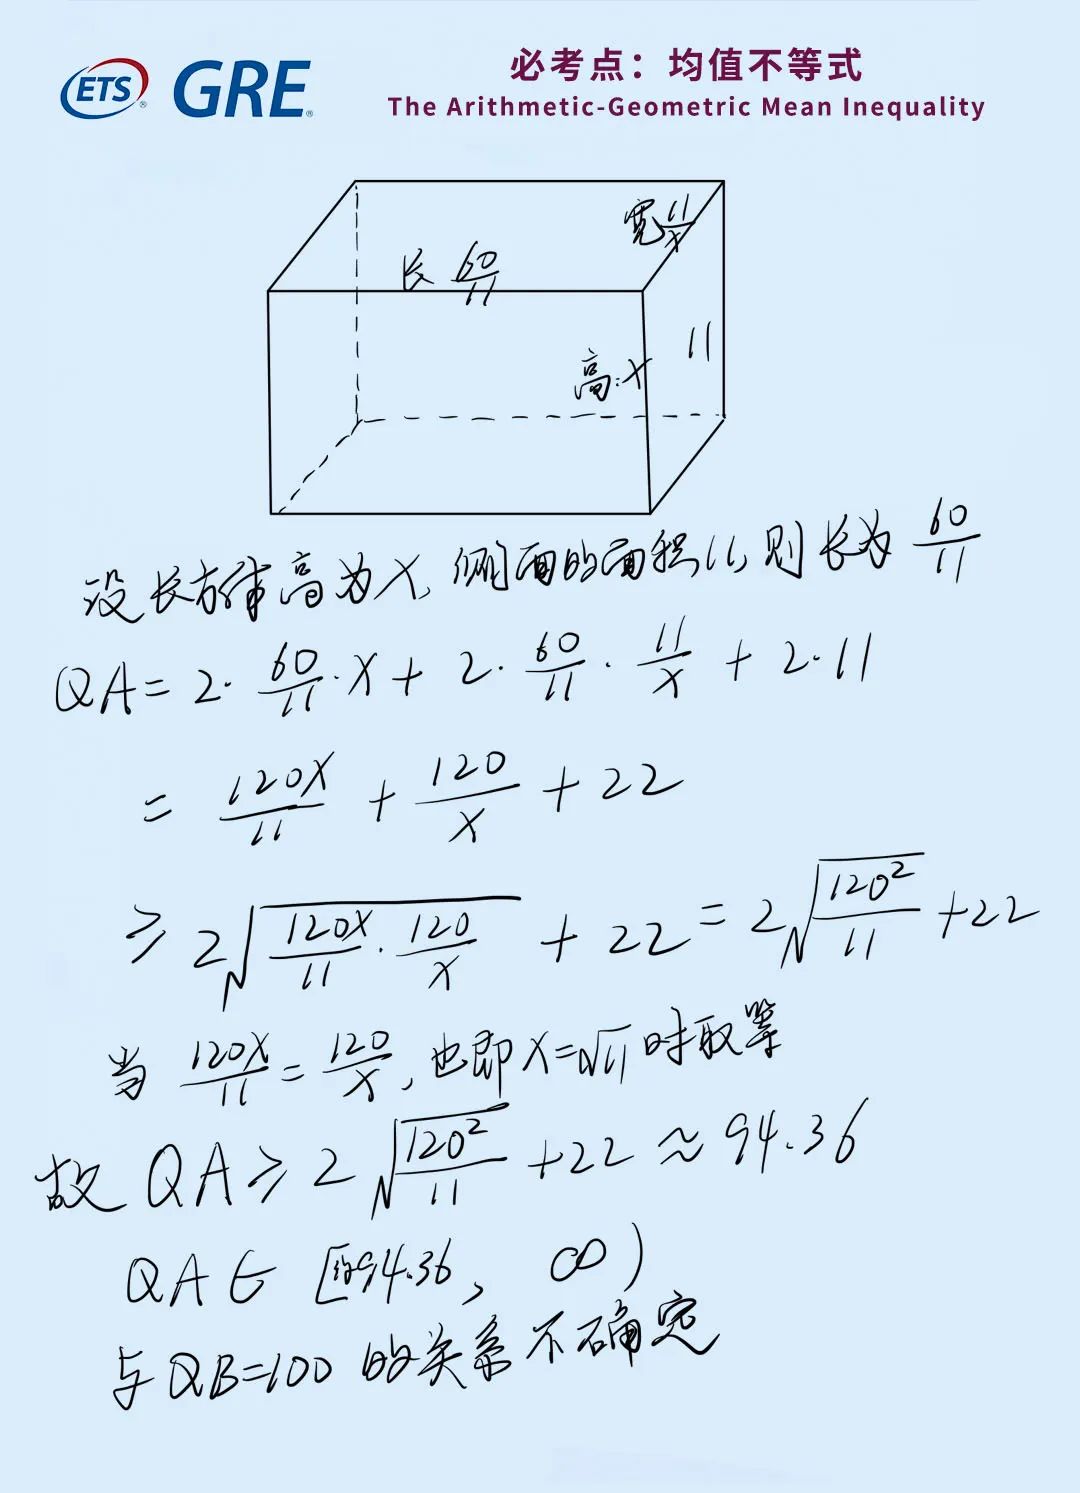 ETS® GRE®
必考点：均值不等式
The Arithmetic-Geometric Mean Inequality
宽 11/x
长 60/11
高:x 11
设长方体高为x, 侧面的面积11, 则长为 60/11
QA = 2· 60/11 ·x + 2· 60/11 · 11/x + 2·11
= 120x/11 + 120/x + 22
≥ 2√(120x/11 · 120/x) + 22 = 2√(120²/11) + 22
当 120x/11 = 120/x, 也即x=√11时取等
故 QA ≥ 2√(120²/11) + 22 ≈ 94.36
QA ∈ [约94.36, ∞)
与QB=100的关系不确定